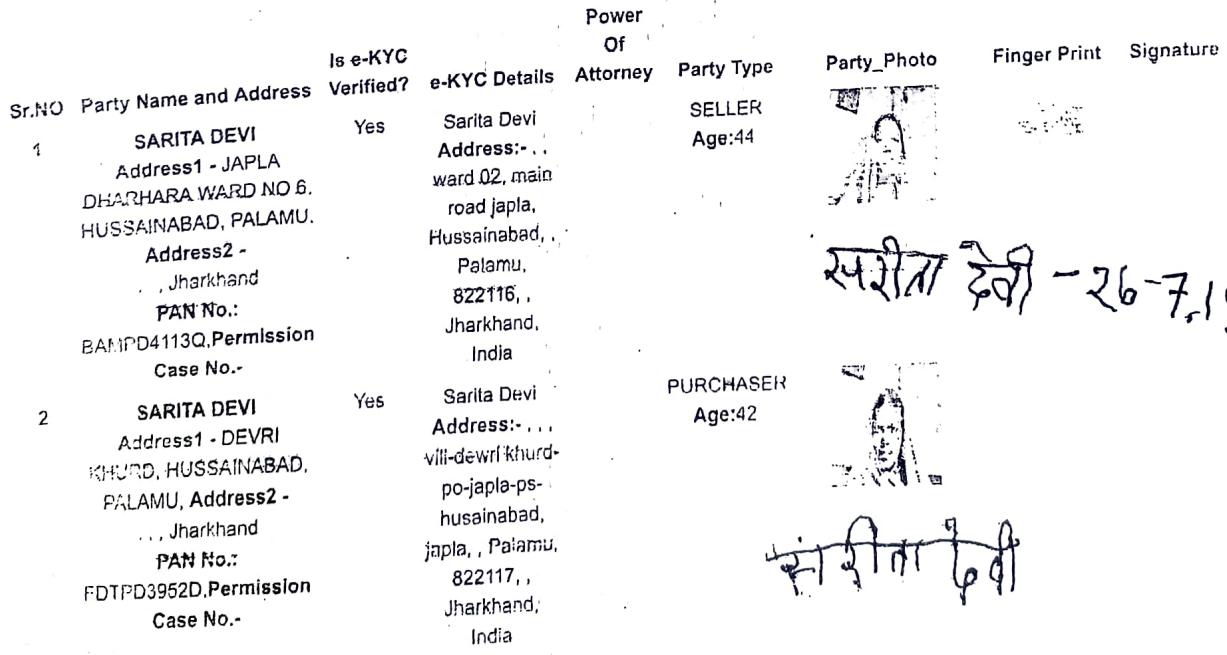 Sr.NO Party Name and Address Is e-KYC Verified? e-KYC Details Power Of Attorney Party Type Party_Photo Finger Print Signature
1
SARITA DEVI
Address1 - JAPLA
DHARHARA WARD NO 6.
HUSSAINABAD, PALAMU.
Address2 -
. , Jharkhand
PAN No.:
BAMPD4113Q,Permission
Case No.-
Yes
Sarita Devi
Address:- . ,
ward 02, main
road japla,
Hussainabad, ,
Palamu,
822116, ,
Jharkhand,
India
SELLER
Age:44
सरीता देवी - 26-7.1
2
SARITA DEVI
Address1 - DEVRI
KHURD, HUSSAINABAD,
PALAMU, Address2 -
. , , Jharkhand
PAN No.:
FDTPD3952D,Permission
Case No.-
Yes
Sarita Devi
Address:- , , ,
vill-dewri khurd-
po-japla-ps-
husainabad,
japla, , Palamu,
822117, ,
Jharkhand,
India
PURCHASER
Age:42
सरीता देवी